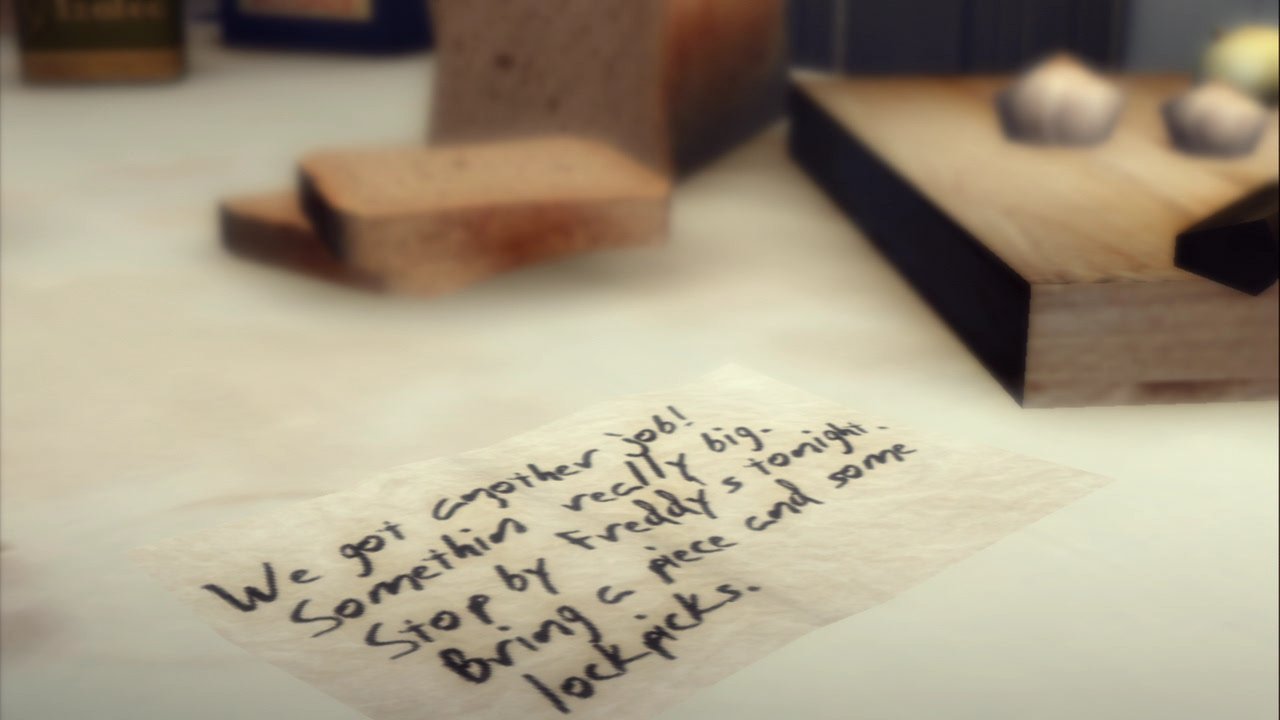 We got another job!
Somethin really big.
Stop by Freddy's tonight.
Bring a piece and some
lockpicks.